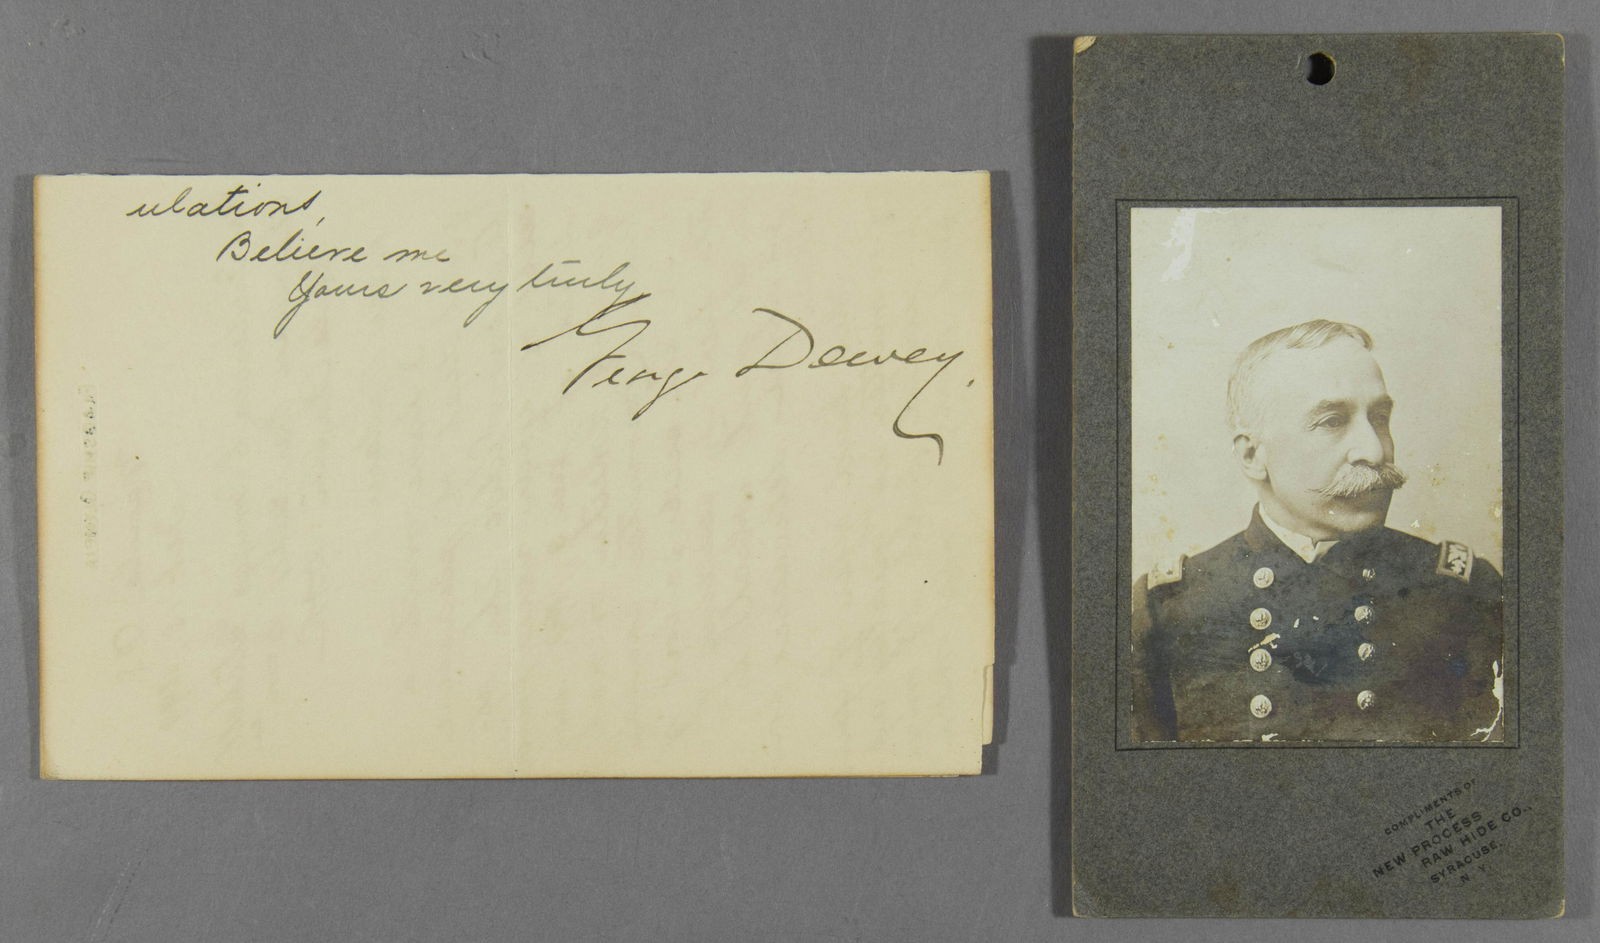 ulations,
Believe me
Yours very truly
George Dewey.
COMPLIMENTS OF
THE
NEW PROCESS
RAW HIDE CO.,
SYRACUSE,
N. Y.